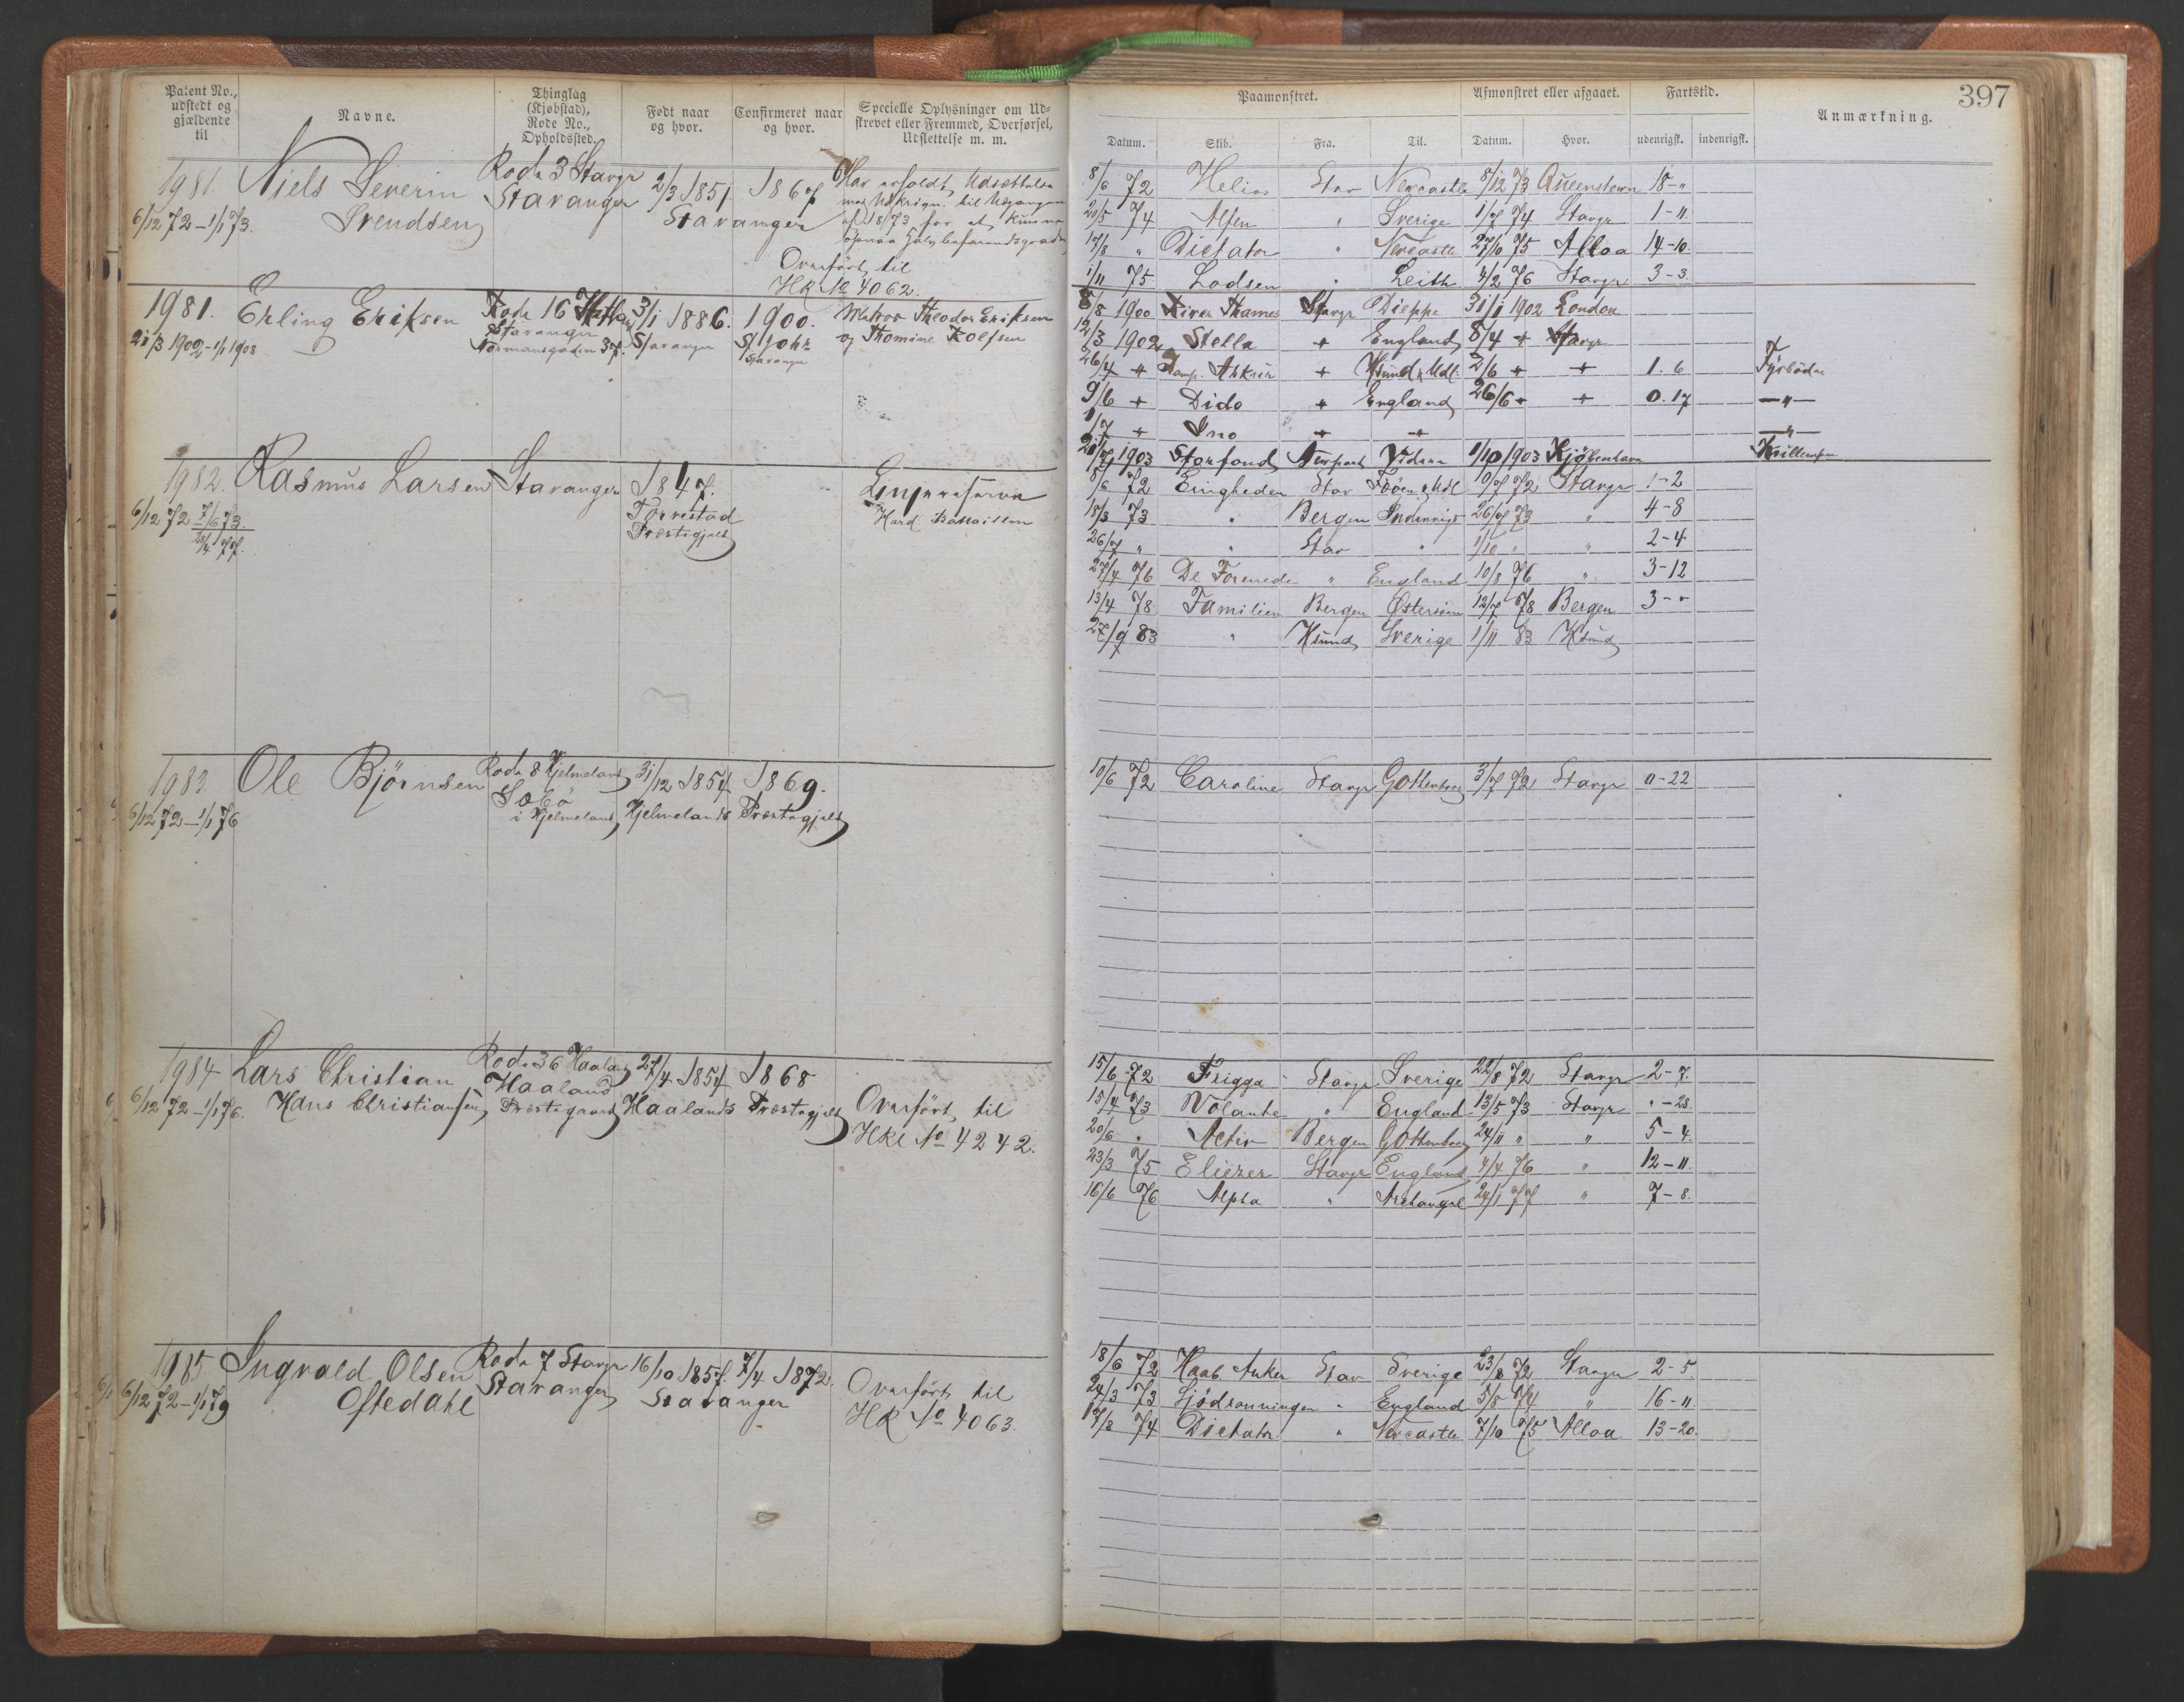 Patent No., udstedt og gjældende til
Navne.
Thinglag (Kjøbstad), Rode No., Opholdssted.
Født naar og hvor.
Confirmeret naar og hvor.
Specielle Oplysninger om Udskrevet eller Fremmed, Overførsel, Udslettelse m. m.
Paamønstret.
Afmønstret eller afgaaet.
Fartstid.
Anmærkning.
397
Datum. Skib. Fra. Til. Datum. Hvor. udenrigsk. indenrigsk.
1981. Niels Severin Rode 3 Stavgr 2/3 1851. 1867 Har erholdt Udsættelse
6/12 72 - 1/1 73. Svendsen Stavanger Stavanger
med Udskrivn. til Udgangen
af 18/73 for at kunne
opnaa Halvbefarendsgraden
Overført til
HK No 4062.
8/6 72 Helios Stav Newcastle 8/12 73 Queenstown 18-"
20/5 74 Alfen " Sverige 1/7 74 Stavgr 1-11
17/8 " Dictator " Newcastle 27/10 75 Alloa 14-10
1/11 75 Lodsen " Leith 4/2 76 Stavgr 3-3
1981. Erling Eriksen Rode 16 3/1 1886. 1900. Matros Theodor Eriksen
21/3 1902-1/1 1908 Stavanger Stavanger St Joh. og Thomine Rolfsen
Normansgaden 37. Stavanger
8/8 1900 River Thames Stavgr Dieppe 31/1 1902 London
12/3 1902 Stella + England 8/4 + Stavgr
26/4 + Damp. + Ksund & Udl. 2/6 + + 1. 6 Fyrbøder
9/6 + Dido + England 26/6 + + 0. 17 -"-
1/7 + Ino + + -"-
1903 Storfond Viderø 1/10 1903 Kjøbenhavn
1982. Rasmus Larsen Stavanger 1847. Linjereserven
6/12 72 7/6 73. Torvestad Hard. Battaillon
28/4 77. Præstegjeld
8/6 72 Enigheden Stav & Udl 10/7 72 Stavgr 1-2
18/3 73 " Bergen Indenrigs 26/7 73 " 4-8
26/7 " " Stav " 1/10 " " 2-4
27/4 76 De Forenede " England 10/8 76 " 3-12
13/4 78 Familien Bergen Østersøen 12/7 78 Bergen 3-"
27/9 83 " Ksund Sverige 1/11 83 Ksund
1983 Ole Bjørnsen Rode 8 Hjelmeland 31/12 1854 1869.
6/12 72-1/1 76 i Hjelmeland Hjelmelands Præstegjeld
10/6 72 Caroline Stavgr Gottenborg 3/7 72 Stavgr "-22
1984 Lars Christian Rode 36 Haaland 27/4 1854 1868
6/12 72-1/1 76. Hans Christiansen Haaland Præstegaard Haalands Præstegjeld
Overført til
HK No 4242.
15/6 72 Frigga Stavgr Sverige 22/8 72 Stavgr 2-7.
15/4 73 Volante " England 13/5 73 Stavgr "-28.
20/6 " Activ Bergen Gottenborg 24/11 " " 5-4.
23/3 75 Eliezer Stavgr England 4/4 76 " 12-11.
16/6 76 Alpha " Archangel 24/1 77 " 7-8.
1985 Ingvald Olsen Rode 7 Stavgr 16/10 1857. 7/4 1872.
6/12 72-1/1 79 Oftedahl Stavanger Stavanger
Overført til
HK No 4063.
18/6 72 Haab Anker Stav Sverige 23/8 72 Stavgr 2-5
24/3 73 Sjødronningen " England 5/8 74 " 16-11
17/8 74 Dictator " Newcastle 7/10 75 Alloa 13-20.